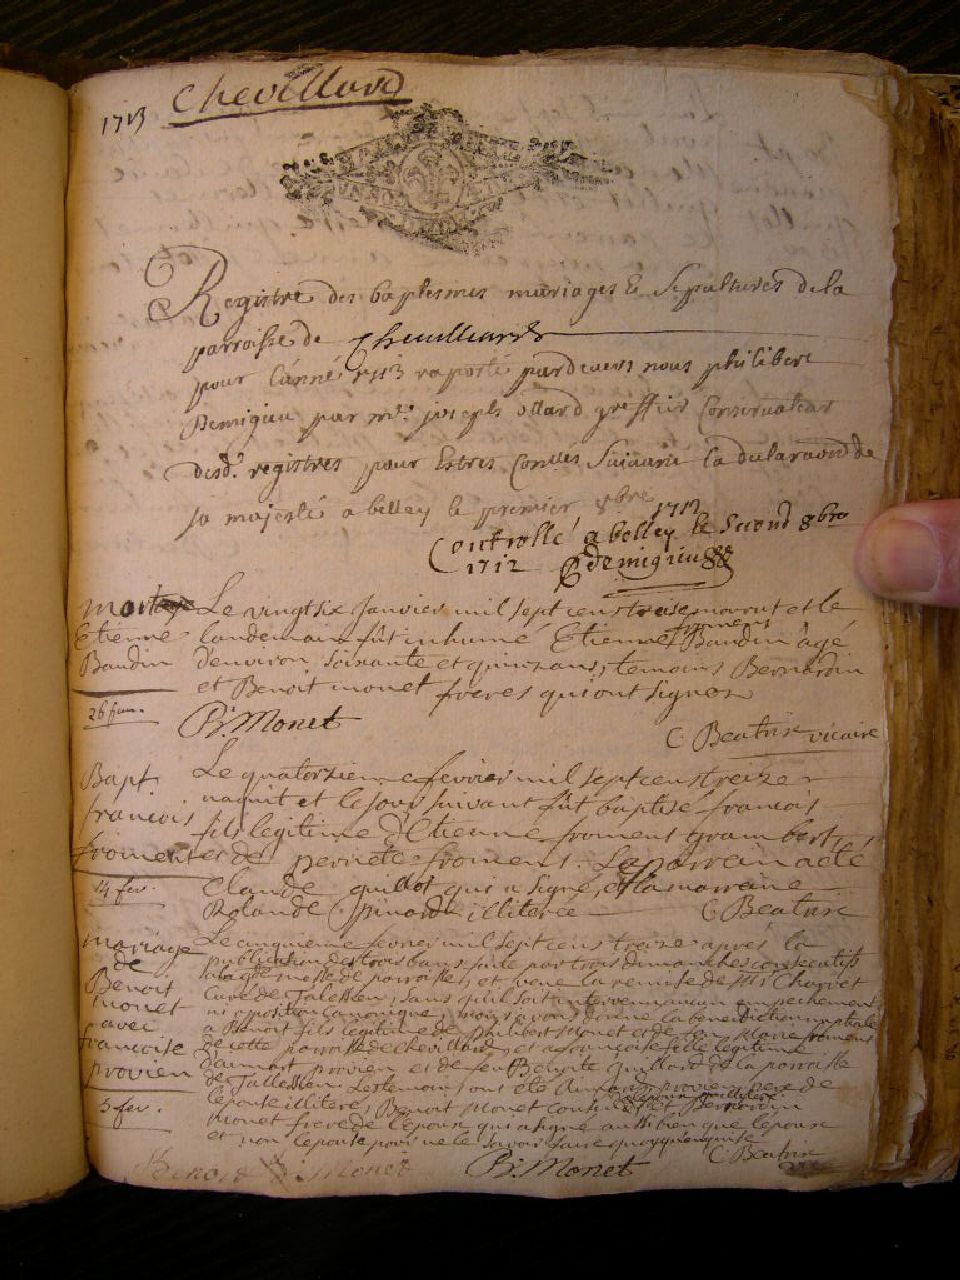 1713 Chevillard
Registre des baptesmes mariages & Sepultures dela
parroisse de Cheuilliard
pour l'année 1713 raporté pardevers nous philibert
Demigieu par mre. joseph ollard greffier Conservateur
desd. registres pour Estres Cottés Suivant la declaraon de
sa majesté a belley le premier 8bre 1712
Controllé a belley le Second 8bre
1712 demigieu
mort
Etienne
Baudin
26 jan.
Le vingtsix Janvier mil sept cens treise mourut et le
landemain fût inhumé Etienne froment Baudin âgé
d'environ soixante et quinz ans, temoins Bernardin
et Benoit monet freres qui ont signes
B. Monet
C. Beatrix vicaire
Bapt.
francois
froment
14 fev.
Le quatorzieme fevrier mil sept cens treize
naquit et le jour suivant fût baptisé francois
fils legitime d'Etienne froment Grambert
et de pernete froment. Le parrain a eté
Claude guillot qui a signé, et la marraine
Rolande Spinard illiterée C. Beatrix
mariage
de
Benoit
monet
avec
francoise
provien
5 fev.
Le cinquieme fevrier mil sept cens treize aprés la
publication des trois bans faite par trois dimanches consecutifs
messe de paroisse, et veue la remise de Mr Charvet
Curé de Talissieu, sans qu'il soit intervenu aucun empechement
ni opposition canonique, nous avons donné la benediction nuptiale
a Benoit fils legitime de philibert Monet et de feu Marie froment
de cette paroisse de chevillard, et a francoise fille legitime
d'aimart provien et de feu Benoite guillard de la paroisse
de Tallissieu. Les temoins ont eté provien pere de
l'epouse illiteré, Benoit Monet et Bernardin
monet frere de l'epoux qui a signé aussi bien que l'epoux
et non l'epouse pour ne le savoir faire quoyque enquise
Benoit Monet B. Monet C. Beatrix